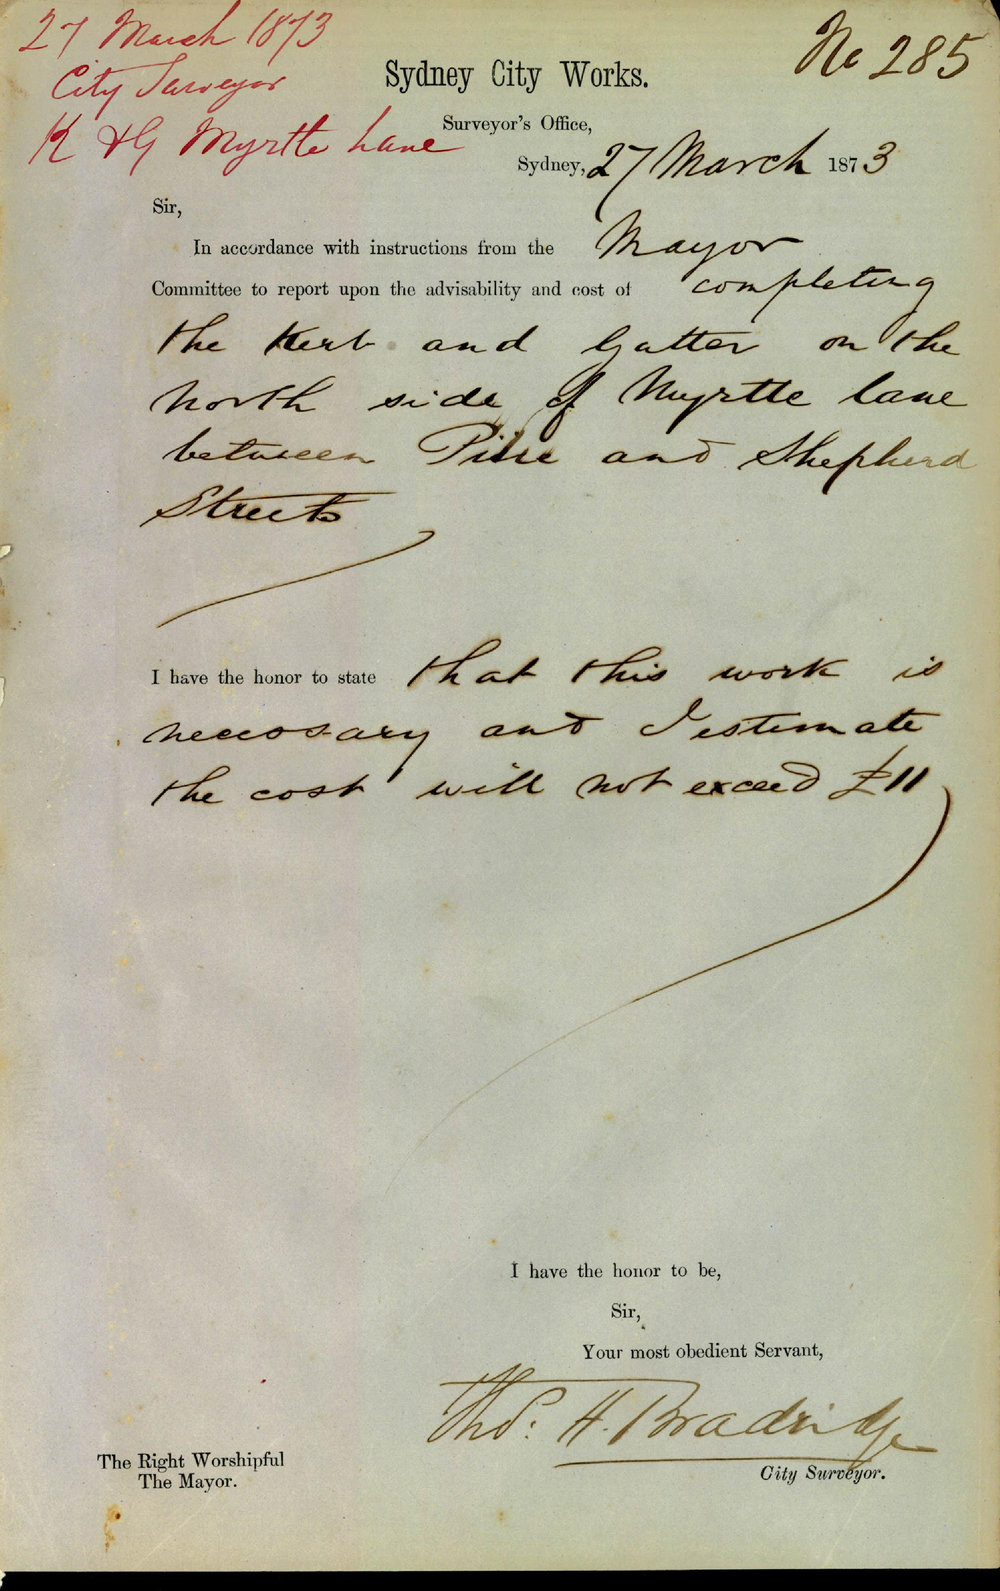 27 March 1873
City Surveyor
K & G Myrtle Lane
No 285
Sydney City Works.
Surveyor's Office,
Sydney, 27 March 1873
Sir,
In accordance with instructions from the Mayor
Committee to report upon the advisability and cost of completing
the Kerb and Gutter on the
North side of Myrtle lane
between and Shepherd
Streets
I have the honor to state that this work is
necessary and I estimate
the cost will not exceed £11
I have the honor to be,
Sir,
Your most obedient Servant,
Thos. H. Bradridge
City Surveyor.
The Right Worshipful
The Mayor.